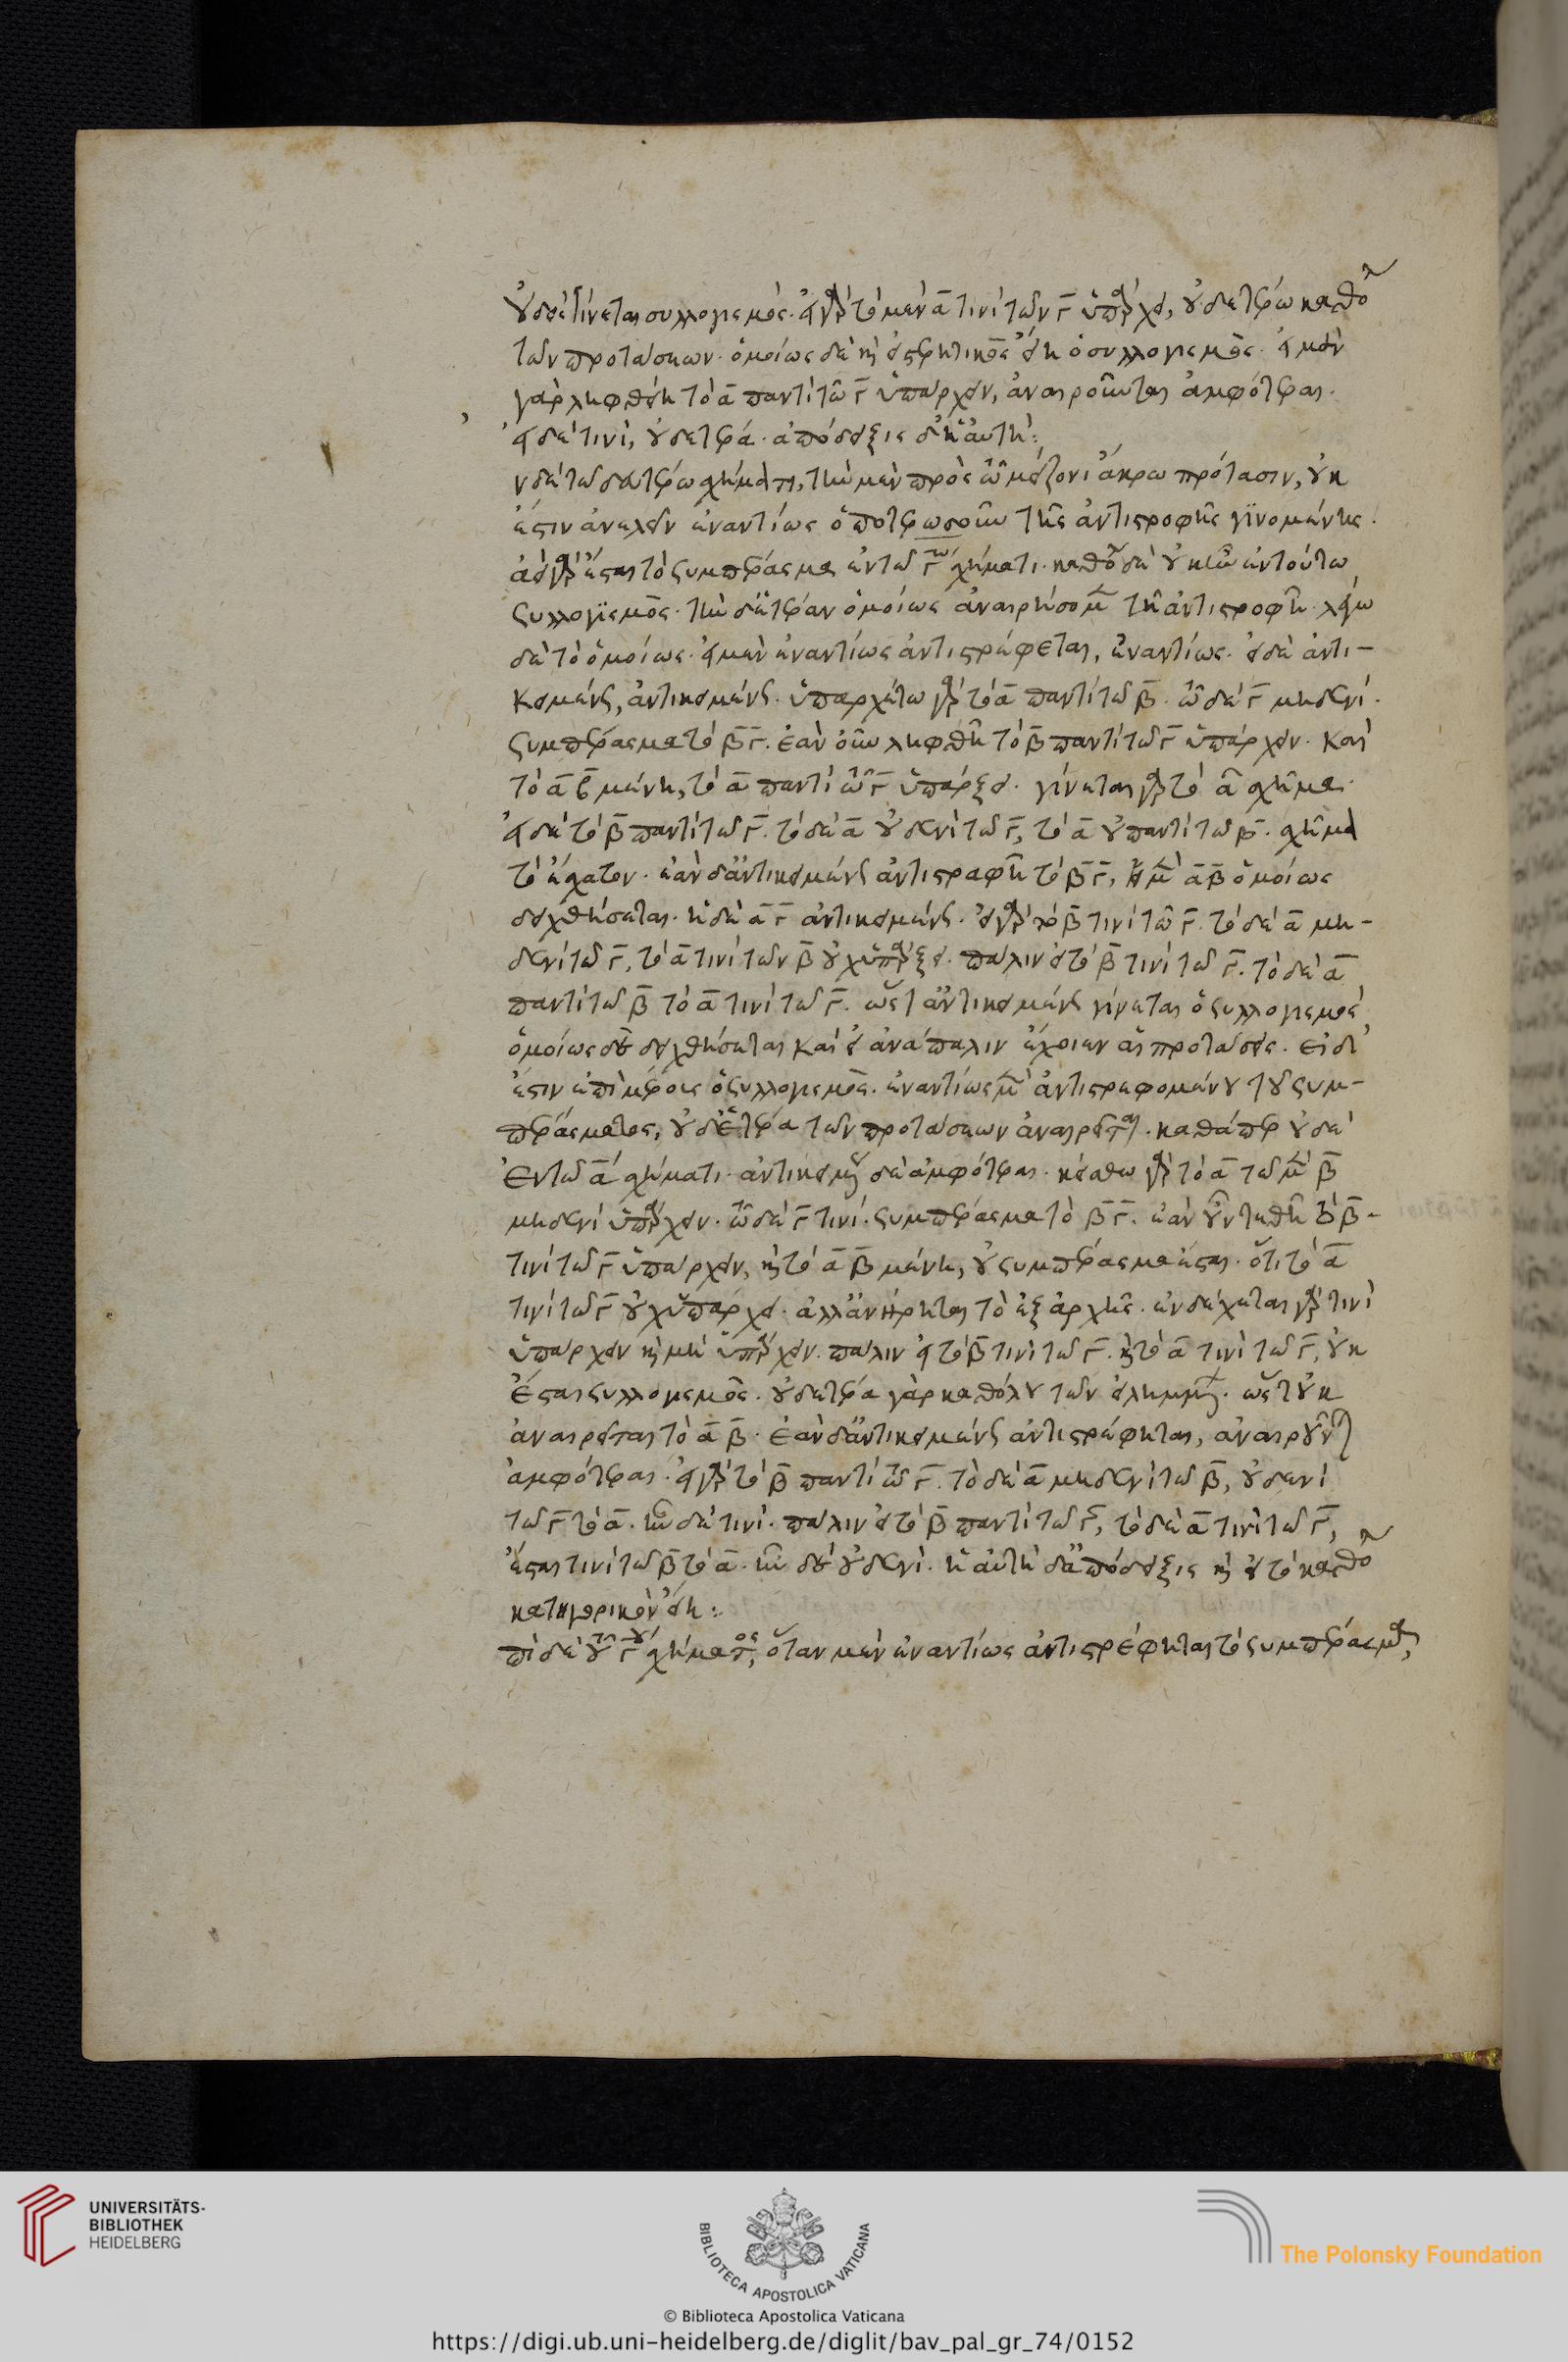 οὐδὲ γίνεται συλλογισμός· εἰ γὰρ τὸ μὲν α̅ τινὶ τῶν γ̅ ὑπάρχει, οὐδετέρω καθόλ
τῶν προτάσεων· ὁμοίως δὲ κὶ εἰ στερητικὸς εἴη ὁ συλλογισμός· εἰ μὲν
γὰρ ληφθείη τὸ α̅ παντὶ τῶ γ̅ ὑπάρχειν, ἀναιροῦνται ἀμφότεραι·
εἰ δὲ τινὶ, οὐδετέρα· ἀπόδειξις δ' ἡ αὐτή:
ν δὲ τῶ δευτέρω σχήματι, τὴν μὲν πρὸς τῶ μείζονι ἄκρω πρότασιν, οὐκ
ἔστιν ἀνελεῖν ἐναντίως ὁποτερωσοῦν τῆς ἀντιστροφῆς γϊνομένης·
ἀεὶ γὰρ ἔσται τὸ συμπέρασμα ἐν τῶ γ̅ω σχήματι· καθόλου δὲ οὐκ ἦν ἐν τούτω
συλλογϊσμός· τὴν δ' ἑτέραν ὁμοίως ἀναιρήσομεν τῆ ἀντιστροφῆ· λέγω
δὲ τὸ ὁμοίως· εἰ μὲν ἐναντίως ἀντιστρέφεται, ἐναντίως· εἰ δὲ ἀντι-
κειμένως, ἀντικειμένως· ὑπαρχέτω γὰρ τὸ α̅ παντὶ τῶ β̅· τῶ δὲ γ̅ μηδενί·
συμπέρασμα τὸ β̅γ̅· ἐὰν οὖν ληφθῆ τὸ β̅ παντὶ τῶ γ̅ ὑπάρχειν· καὶ
τὸ α̅β̅ μένη, τὸ α̅ παντὶ τῶ γ̅ ὑπάρξει· γίνεται γὰρ τὸ α̅ σχῆμα·
εἰ δὲ τὸ β̅ παντὶ τῶ γ̅· τὸ δὲ α̅ οὐδενὶ τῶ γ̅, τὸ α̅ οὐ παντὶ τῶ β̅· σχῆμα
τὸ ἔσχατον· ἐὰν δ' ἀντικειμένως ἀντιστραφῆ τὸ β̅γ̅, ἡ μὲν α̅β̅ ὁμοίως
δειχθήσεται· ἡ δὲ α̅γ̅ ἀντικειμένως· εἰ γὰρ τὸ β̅ τινὶ τῶ γ̅· τὸ δὲ α̅ μη-
δενὶ τῶ γ̅, τὸ α̅ τινὶ τῶν β̅ οὐχ ὑπάρξει· πάλιν εἰ τὸ β̅ τινὶ τῶ γ̅· τὸ δὲ α̅
παντὶ τῶ β̅ τὸ α̅ τινὶ τῶ γ̅· ὥστ' ἀντικειμένως γίνεται ὁ συλλογισμός
ὁμοίως δὲ δειχθήσεται καὶ εἰ ἀνάπαλιν ἔχοιεν αἱ προτάσεις· εἰ δ'
ἔστιν ἐπὶ μέρους ὁ συλλογισμὸς· ἐναντίως μὲν ἀντιστρεφομένου τοῦ συμ-
περάσματος, οὐδ' ἑτέρα τῶν προτάσεων ἀναιρεῖται· καθάπερ οὐδὲ
ἐν τῶ α̅ σχήματι· ἀντικειμένως δὲ ἀμφότεραι· κείσθω γὰρ τὸ α̅ τῶ μὲν β̅
μηδενὶ ὑπάρχειν· τῶ δὲ γ̅ τινί· συμπέρασμα τὸ β̅γ̅· ἐὰν οὖν τεθῆ τὸ β̅-
τινὶ τῶ γ̅ ὑπάρχειν, κὶ τὸ α̅β̅ μένη, οὐ συμπέρασμα ἔσται· ὅτι τὸ α̅
τινὶ τῶ γ̅ οὐχ ὑπάρχει· ἀλλ' ἀνήρηται τὸ ἐξ ἀρχῆς· ἐνδέχεται γὰρ τινὶ
ὑπάρχειν κὶ μὴ ὑπάρχειν· πάλιν εἰ τὸ β̅ τινὶ τῶ γ̅· κὶ τὸ α̅ τινὶ τῶ γ̅, οὐκ
ἔσται συλλογισμὸς· οὐδετέρα γὰρ καθόλου τῶν εἰλημμένων· ὥστ' οὐκ
ἀναιρεῖται τὸ α̅β̅· ἐὰν δ' ἀντικειμένως ἀντιστρέφηται, ἀναιροῦνται
ἀμφότεραι· εἰ γὰρ τὸ β̅ παντὶ τῶ γ̅· τὸ δὲ α̅ μηδενὶ τῶ β̅, οὐδενὶ
τῶ γ̅ τὸ α̅· ἦν δὲ τινὶ· πάλιν εἰ τὸ β̅ παντὶ τῶ γ̅, τὸ δὲ α̅ τινὶ τῶ γ̅,
ἔσται τινὶ τῶ β̅ τὸ α̅· ἦν δὲ οὐδενί· ἡ αὐτὴ δ' ἀπόδειξις κὶ εἰ τὸ καθόλ
κατηγορικὸν εἴη:
πὶ δὲ τοῦ γ̅ου σχήματος, ὅταν μὲν ἐναντίως ἀντιστρέφηται τὸ συμπέρασμα,
UNIVERSITÄTS-
BIBLIOTHEK
HEIDELBERG
BIBLIOTECA APOSTOLICA VATICANA
The Polonsky Foundation
© Biblioteca Apostolica Vaticana
https://digi.ub.uni-heidelberg.de/diglit/bav_pal_gr_74/0152